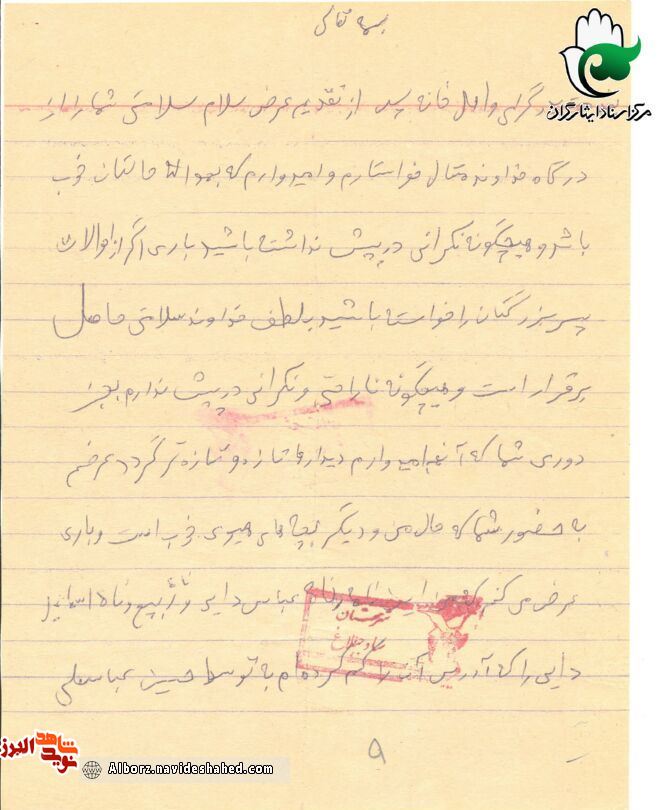 بسمه تعالی
مرکز اسناد ایثارگران
گرامی و اهل خانه پس از تقدیم عرض سلام سلامتی شما را از
درگاه خداوند متعال خواستارم و امیدوارم که بحمدالله حالتان خوب
باشد و هیچگونه نگرانی در پیش نداشته باشید باری اگر از احوالات
پسر بزرگتان را خواسته باشید بلطف خداوند سلامتی حاصل
برقرار است و هیچگونه ناراحتی و نگرانی در پیش ندارم بجز
دوری شما که آنهم امیدوارم دیدارها تازه و تازه تر گردد عرضم
به حضور شما که حال من و دیگر بچه های خوب است و باری
عرض می کنم که من این نامه عباس دایی و ربیع و نامه اسماعیل
دایی را که آدرس آن را گم کرده ام به توسط حسین عباسعلی
۹
نوید شاهد البرز
Alborz.navideshahed.com